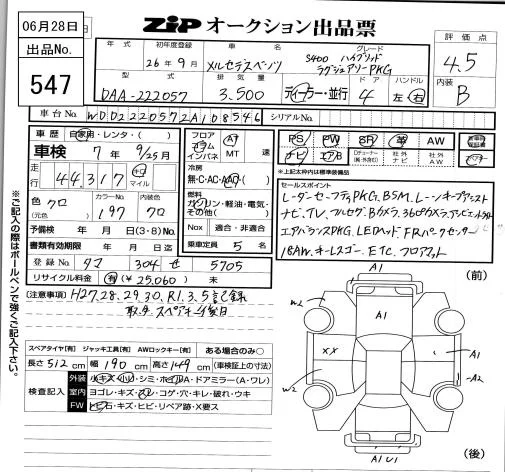 06月28日
ZIP オークション出品票
出品No.
547
年式
初年度登録
車名
グレード
評価点
26年9月
メルセデスベンツ
S400 ハイブリッド
ラグジュアリーPKG
4.5
型式
排気量
ドア
ハンドル
内装
DAA-222057
3.500
ディーラー・並行
4
左・右
B
車台No.
WDD2220572A108546
シリアルNo.
車歴
自家用・レンタ・( )
フロア
コラム
インパネ
AT
MT
速
PS
PW
SR
革
AW
車検
7年9/25月
ナビ
エアB
社外ナビ
社外AW
走行
44.317
キロ
マイル
冷房
無・C・AC・AAC
燃料
ガソリン・軽油・電気・
その他( )
※上記枠内は標準装備品
セールスポイント
レーダーセーフティPKG. BSM. レーンキープアシスト
ナビ. TV. フルセグ. Bカメラ. 360°カメラ. アンビエントライト
エアバランスPKG. LEDヘッド FRパークセンサー
18AW. キーレスゴー. ETC. フロアマット
色
(元色)
クロ
カラーNo
197
クロ
予備検
月 日
(3・8)No.
Nox
適合・非適合
書類有効期限
年 月 日迄
乗車定員
5
名
登録No.
304
せ
5705
リサイクル料金
有(¥25,060)
未
(注意事項)
H27.28.29.30.R1.3.5記録
取.キ.スペアキー後日
スペアタイヤ[有] ジャッキ工具[有] AWロックキー[有]
ある場合のみ○
長さ512cm
幅190cm
高さ149cm
(車検証上の寸法)
検査記入
外装
小キズ・小凹・シミ・ホイルA・ドアミラー(A・ワレ)
室内
ヨゴレ・キズ・スレ・コゲ・穴・キレ・破れ・ウキ
FW
トビ石・キズ・ヒビ・リペア跡・X要ス
※ご記入の際はボールペンで強くご記入下さい。
A1
(前)
W2
A1
A1
XX
A2
W2
A1 U1
(後)